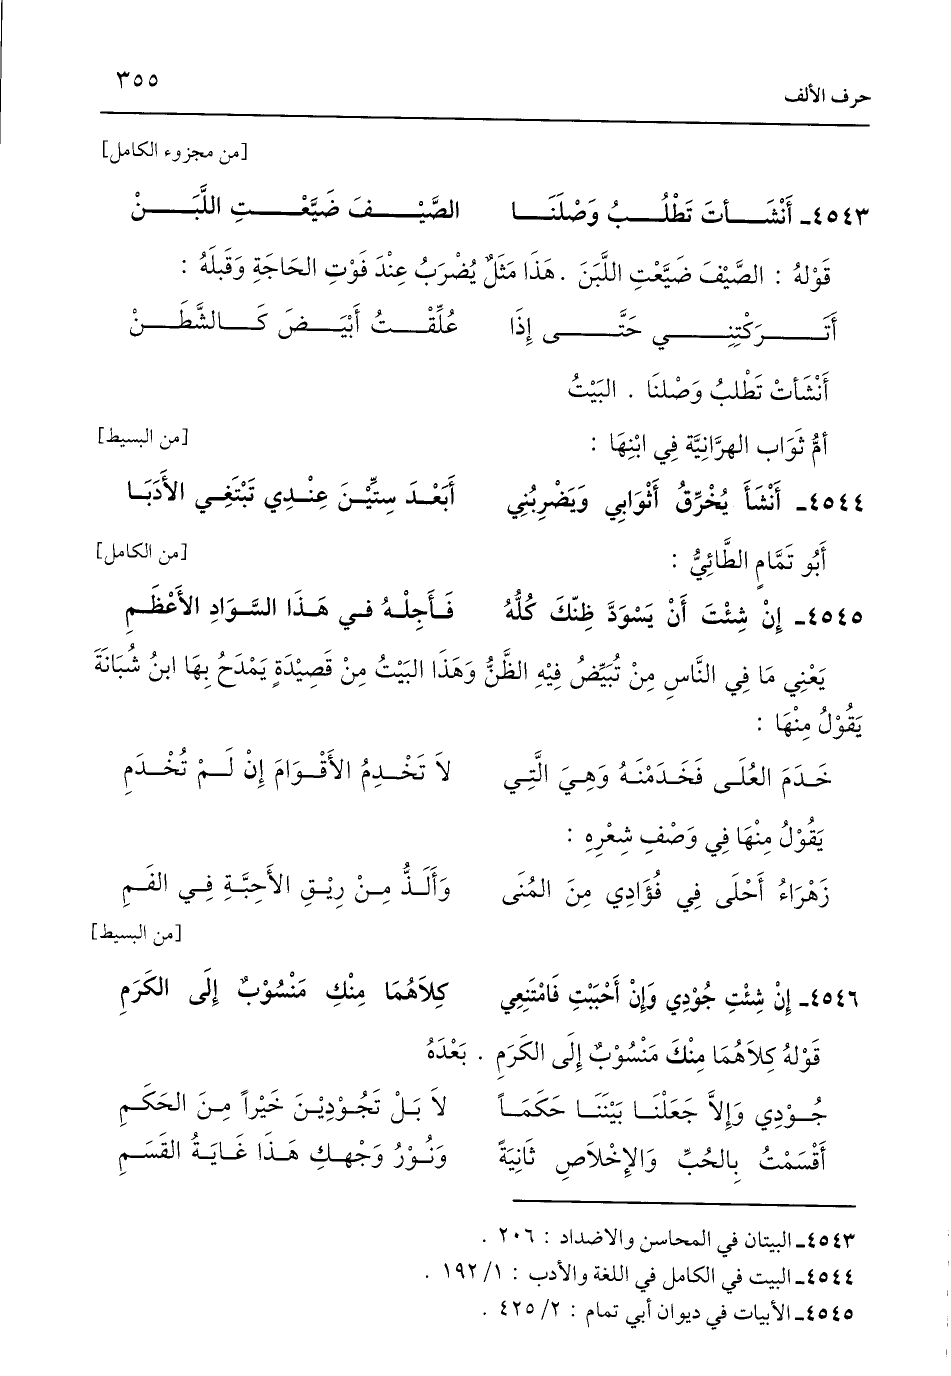 حرف الألف ٣٥٥
[من مجزوء الكامل]
٤٥٤٣ـ أَنْشَــأتَ تَطْلُــبُ وَصْلَنَــا الصَّيْــفَ ضَيَّعْــتِ اللَّبَــنْ
قَوْلهُ : الصَّيْفَ ضَيَّعْتِ اللَّبَنَ . هَذَا مَثَلٌ يُضْرَبُ عِنْدَ فَوْتِ الحَاجَةِ وَقَبلَهُ :
أَتَــرَكْتِنِــي حَتَّــى إِذَا عُلِّقْــتُ أَبْيَــضَ كَــالشَّطَــنْ
أَنْشَأتْ تَطْلبُ وَصْلنَا . البَيْتُ
أمُّ ثَوَاب الهزَّانِيَّة فِي ابْنِهَا : [من البسيط]
٤٥٤٤ـ أَنْشَأَ يُخْرِّقُ أَثْوَابِي وَيَضْرِبُنِي أَبَعْـدَ سِتِّيْـنَ عِنْـدِي تَبْتَغِـي الأَدَبَـا
أَبُو تَمَّامٍ الطَّائِيُّ : [من الكامل]
٤٥٤٥ـ إِنْ شِئْتَ أَنْ يَسْوَدَّ ظَنّكَ كُلُّهُ فَـأَجِلْـهُ فـي هَـذَا السَّـوَادِ الأَعْظَـمِ
يَعْنِي مَا فِي النَّاسِ مِنْ تُبَيِّضُ فِيْهِ الظَّنُّ وَهَذَا البَيْتُ مِنْ قَصِيْدَةٍ يَمْدَحُ بِهَا ابنُ شُبَانَةَ
يَقُوْلُ مِنْهَا :
خَـدَمَ العُلَـى فَخَـدَمْنَـهُ وَهِـيَ الَّتِـي لاَ تَخْـدِمُ الأَقْـوَامَ إِنْ لَـمْ تُخْـدَمِ
يَقُوْلُ مِنْهَا فِي وَصْفِ شِعْرِهِ :
زَهْرَاءُ أَحْلَى فِي فُؤَادِي مِنَ المُنَى وَأَلَـذُّ مِـنْ رِيْـقِ الأَحِبَّـةِ فِـي الفَـمِ
[من البسيط]
٤٥٤٦ـ إِنْ شِئْتِ جُوْدِي وَإِنْ أَحْبَبْتِ فَامْتَنِعِي كِلاَهُمَا مِنْكِ مَنْسُوْبٌ إِلَى الكَرَمِ
قَوْلهُ كِلاَهُمَا مِنْكَ مَنْسُوْبٌ إِلَى الكَرَمِ . بَعْدَهُ
جُـوْدِي وَإِلاَّ جَعَلْنَـا بَيْنَنَـا حَكَمَـاً لاَ بَـلْ تَجُـوْدِيْـنَ خَيْـراً مِـنَ الحَكَـمِ
أَقْسَمْتُ بِالحُبِّ وَالإِخْلاَصِ ثَانِيَةً وَنُـوْرُ وَجْهـكِ هَـذَا غَـايَـةُ القَسَـمِ
٤٥٤٣ـ البيتان في المحاسن والاضداد : ٢٠٦ .
٤٥٤٤ـ البيت في الكامل في اللغة والأدب : ١/ ١٩٢ .
٤٥٤٥ـ الأبيات في ديوان أبي تمام : ٢/ ٤٢٥ .